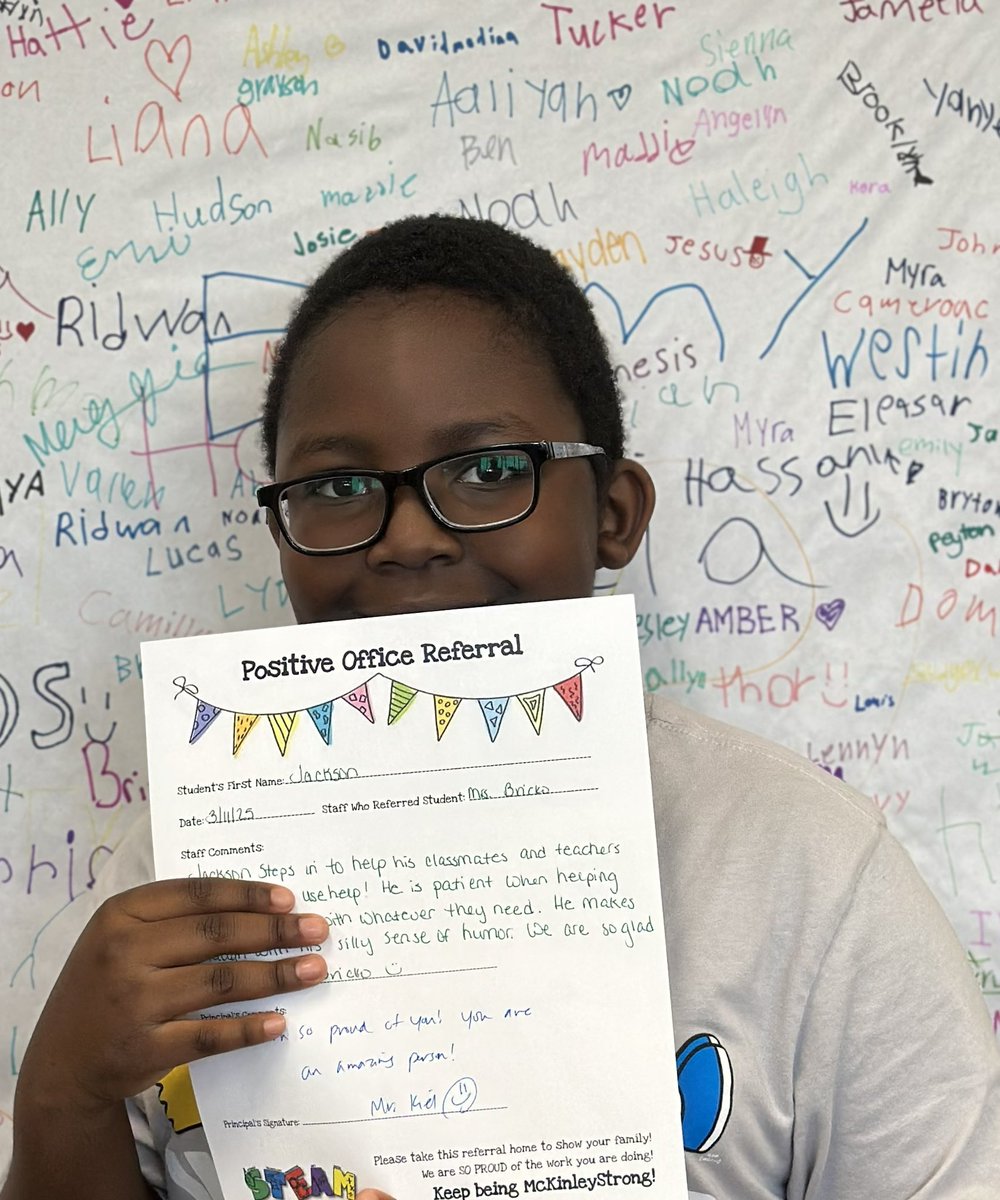 Hattie
David medina
Tucker
Jametta
Sienna
Ashley
grayson
Aaliyah
Noah
Brooklyn
Liana
Nasib
Ben
Maddie
Angelyn
Ally
Hudson
mazzie
Noah
Haleigh
Kora
Emi
Josie
ayden
Jesus
John
Ridwan
Myra
Westin
nesis
Myra
Eleasar
emily
YA
Hassani
Ridwan
Lucas
Peyton
esley AMBER
Dom
allye
thor
Louis
ennyn
Bri
Positive Office Referral
Student's First Name: Jackson
Date: 3/11/25 Staff Who Referred Student: Mrs. Bricko
Staff Comments:
Jackson steps in to help his classmates and teachers
use help! He is patient when helping
with whatever they need. He makes
his silly sense of humor. We are so glad
Bricko
Principal's Comments:
so proud of you! you are
an amazing person!
Mr. Kiel
Principal's Signature:
Please take this referral home to show your family!
We are SO PROUD of the work you are doing!
STEAM Keep being McKinleyStrong!